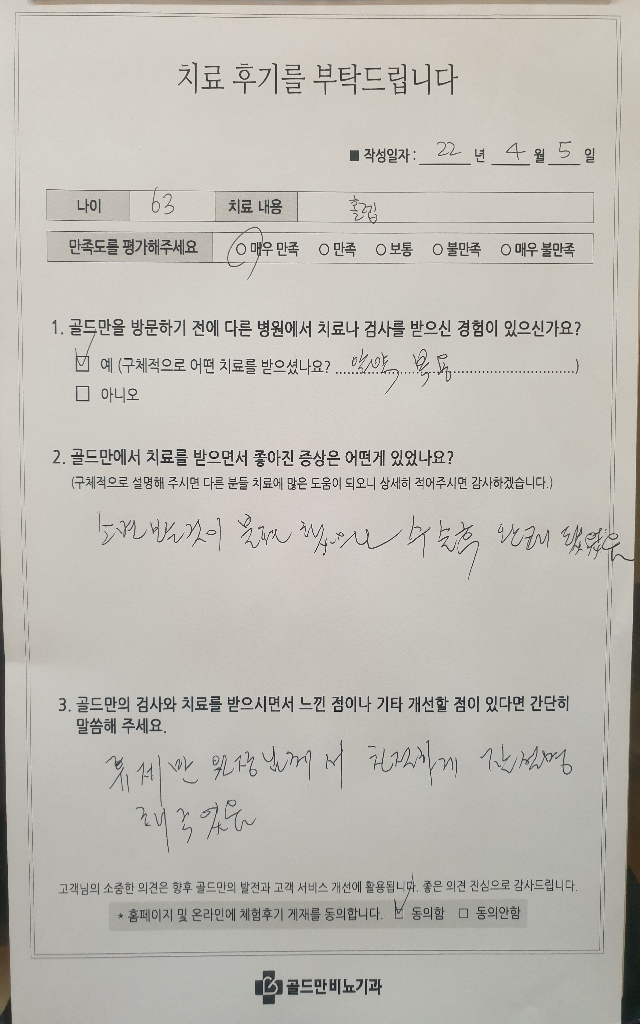 치료 후기를 부탁드립니다
■ 작성일자 : 22 년 4 월 5 일
나이 63 치료 내용 홀렙
만족도를 평가해주세요 ○ 매우 만족 ○ 만족 ○ 보통 ○ 불만족 ○ 매우 불만족
1. 골드만을 방문하기 전에 다른 병원에서 치료나 검사를 받으신 경험이 있으신가요?
☑ 예 (구체적으로 어떤 치료를 받으셨나요? 알약 복용)
☐ 아니오
2. 골드만에서 치료를 받으면서 좋아진 증상은 어떤게 있었나요?
(구체적으로 설명해 주시면 다른 분들 치료에 많은 도움이 되오니 상세히 적어주시면 감사하겠습니다.)
소변 보는것이 불편 했으나 수술후 완쾌 되었음
3. 골드만의 검사와 치료를 받으시면서 느낀 점이나 기타 개선할 점이 있다면 간단히
말씀해 주세요.
류제만 원장님께서 친절하게 잘 설명
해 주었음
고객님의 소중한 의견은 향후 골드만의 발전과 고객 서비스 개선에 활용됩니다. 좋은 의견 진심으로 감사드립니다.
* 홈페이지 및 온라인에 체험후기 게재를 동의합니다. ☑ 동의함 ☐ 동의안함
골드만비뇨기과